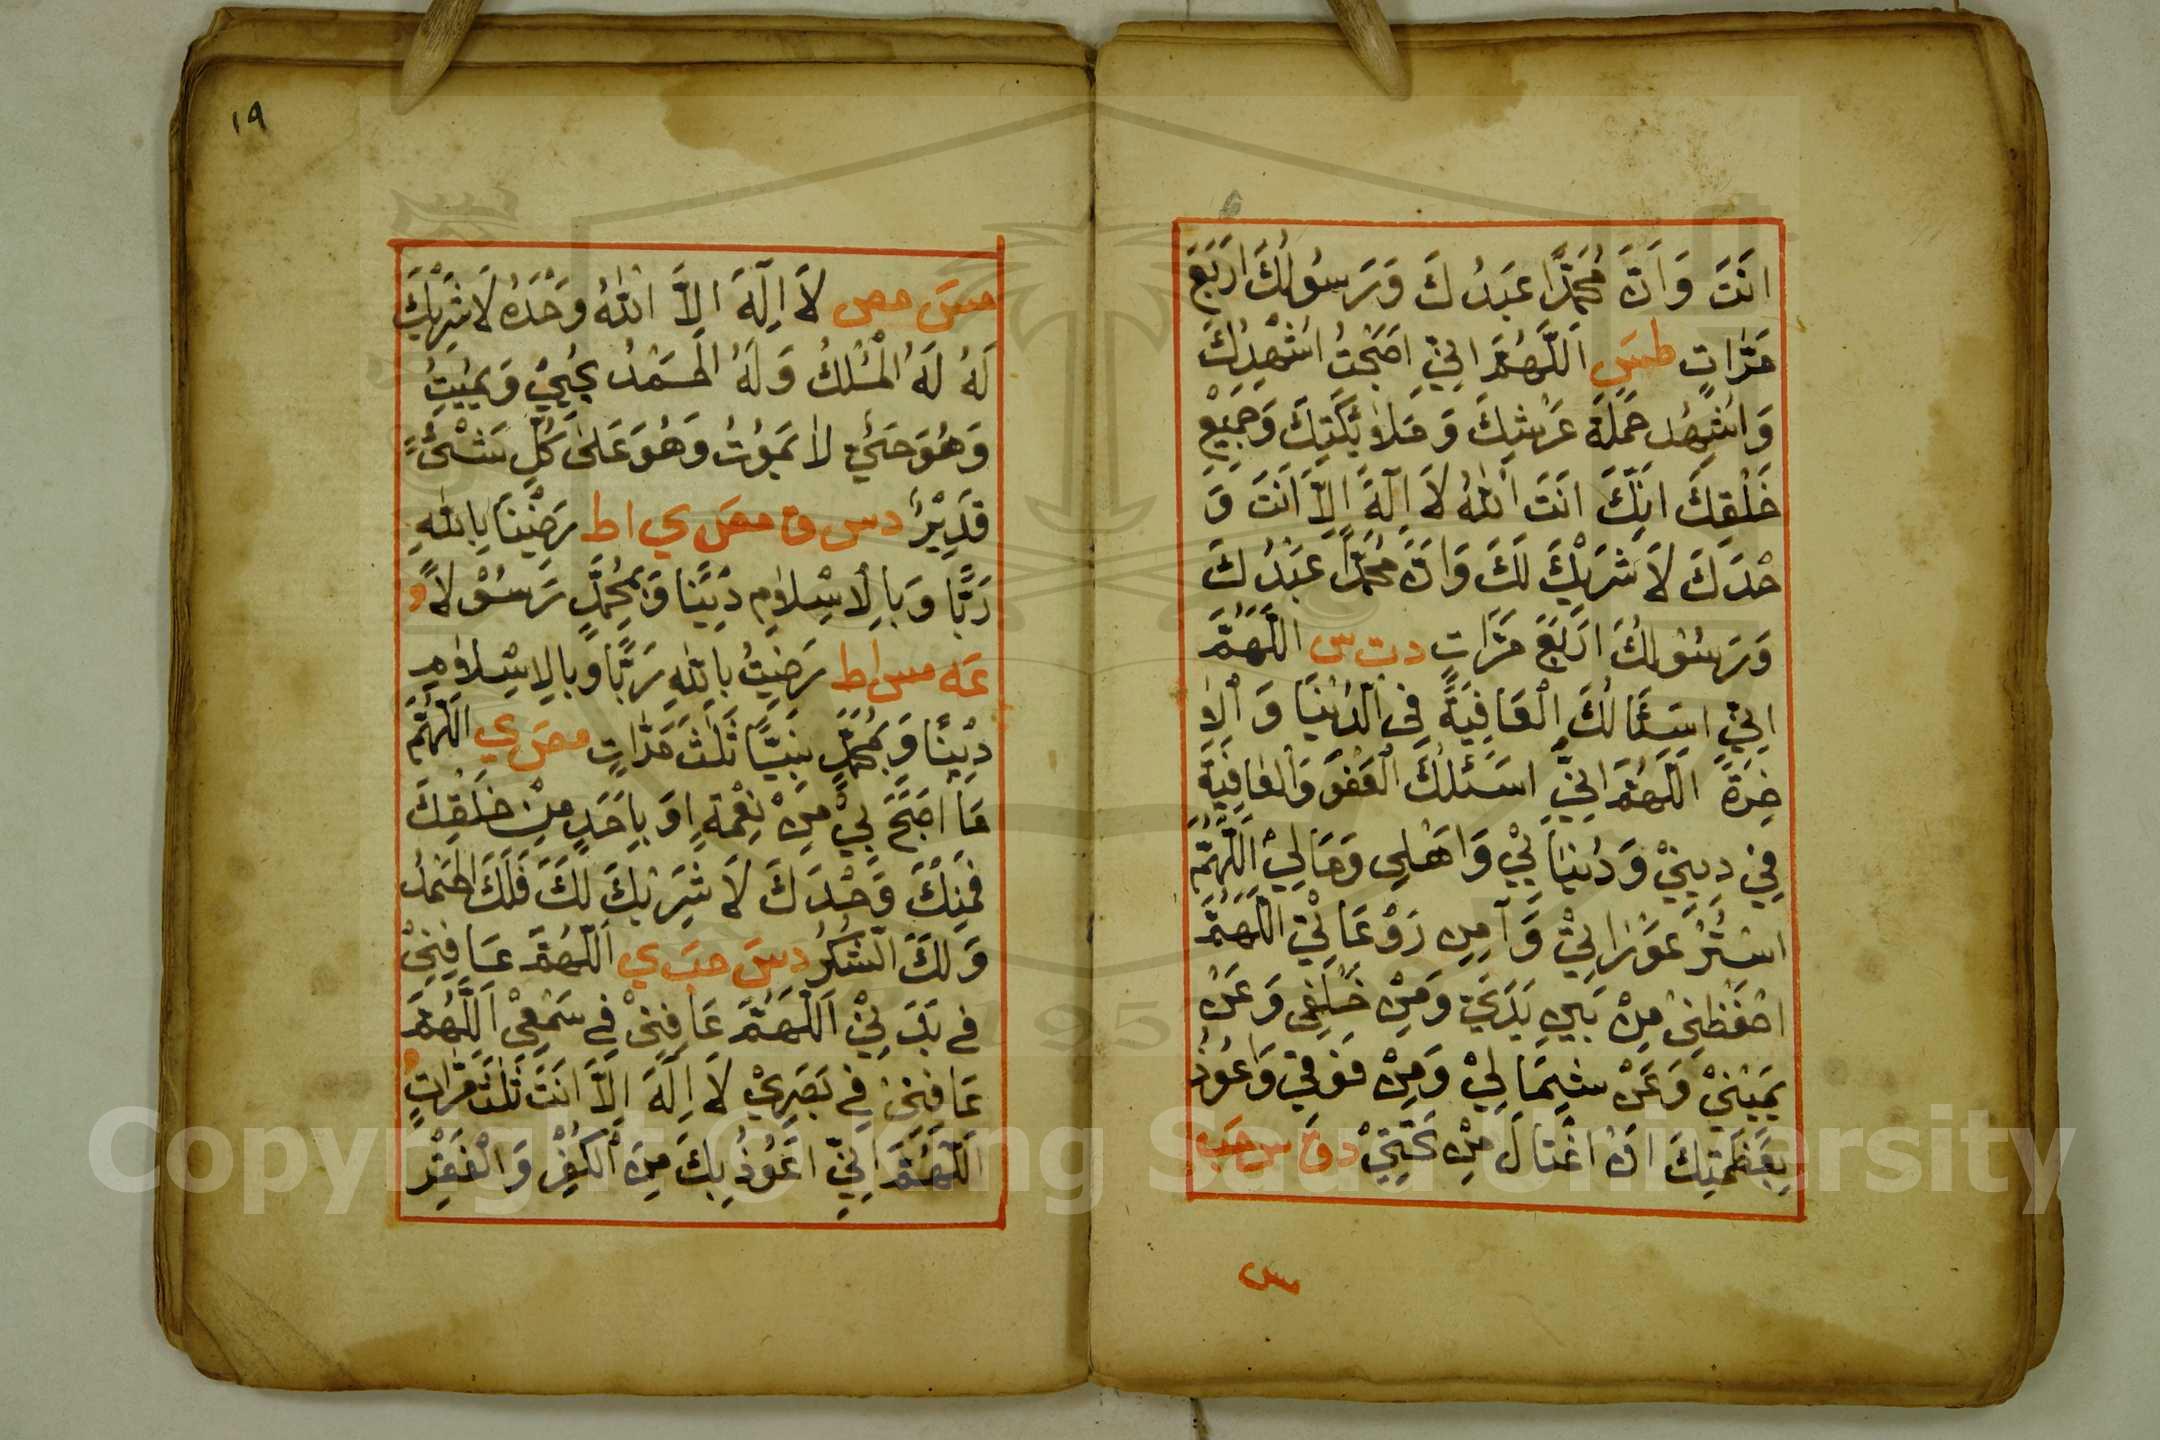 اَنْتَ وَاَنَّ مُحَمَّدًا عَبْدُكَ وَرَسُولُكَ اَرْبَعَ
مَرَّاتٍ طس اَللّٰهُمَّ اِنِّيْ اَصْبَحْتُ اُشْهِدُكَ
وَاُشْهِدُ حَمَلَةَ عَرْشِكَ وَمَلَائِكَتِكَ وَجَمِيْعِ
خَلْقِكَ اَنَّكَ اَنْتَ اللّٰهُ لَا اِلٰهَ اِلَّا اَنْتَ وَ
حْدَكَ لَا شَرِيْكَ لَكَ وَاَنَّ مُحَمَّدًا عَبْدُكَ
وَرَسُوْلُكَ اَرْبَعَ مَرَّاتٍ د ت س اَللّٰهُمَّ
اِنِّيْ اَسْئَالُكَ الْعَافِيَةَ فِي الدُّنْيَا وَالْاٰ
خِرَةِ اَللّٰهُمَّ اِنِّيْ اَسْئَلُكَ الْعَفْوَ وَالْعَافِيَةَ
فِيْ دِيْنِيْ وَدُنْيَايَ وَاَهْلِيْ وَمَالِيْ اَللّٰهُمَّ
اسْتُرْ عَوْرَاتِيْ وَآمِنْ رَوْعَاتِيْ اَللّٰهُمَّ
احْفَظْنِيْ مِنْ بَيْنِ يَدَيَّ وَمِنْ خَلْفِيْ وَعَنْ
يَمِيْنِيْ وَعَنْ شِمَالِيْ وَمِنْ فَوْقِيْ وَاَعُوْذُ
بِعَظَمَتِكَ اَنْ اُغْتَالَ مِنْ تَحْتِيْ د ق س حب
مس
مس مص لَا اِلٰهَ اِلَّا اللّٰهُ وَحْدَهُ لَا شَرِيْكَ
لَهُ لَهُ الْمُلْكُ وَلَهُ الْحَمْدُ يُحْيِيْ وَيُمِيْتُ
وَهُوَ حَيٌّ لَا يَمُوْتُ وَهُوَ عَلٰى كُلِّ شَيْءٍ
قَدِيْرٌ د س ق مص ي اط رَضِيْنَا بِاللّٰهِ
رَبًّا وَبِالْاِسْلَامِ دِيْنًا وَبِمُحَمَّدٍ رَسُوْلًا
عه مس اط رَضِيْتُ بِاللّٰهِ رَبًّا وَبِالْاِسْلَامِ
دِيْنًا وَبِمُحَمَّدٍ نَبِيًّا ثَلٰثَ مَرَّاتٍ مص ي اَللّٰهُمَّ
مَا اَصْبَحَ بِيْ مِنْ نِعْمَةٍ اَوْ بِاَحَدٍ مِنْ خَلْقِكَ
فَمِنْكَ وَحْدَكَ لَا شَرِيْكَ لَكَ فَلَكَ الْحَمْدُ
وَلَكَ الشُّكْرُ د س حب ي اَللّٰهُمَّ عَافِنِيْ
فِيْ بَدَنِيْ اَللّٰهُمَّ عَافِنِيْ فِيْ سَمْعِيْ اَللّٰهُمَّ
عَافِنِيْ فِيْ بَصَرِيْ لَا اِلٰهَ اِلَّا اَنْتَ ثَلٰثَ مَرَّاتٍ
اَللّٰهُمَّ اِنِّيْ اَعُوْذُ بِكَ مِنَ الْكُفْرِ وَالْفَقْرِ
١٩
Copyright © King Saud University
1957